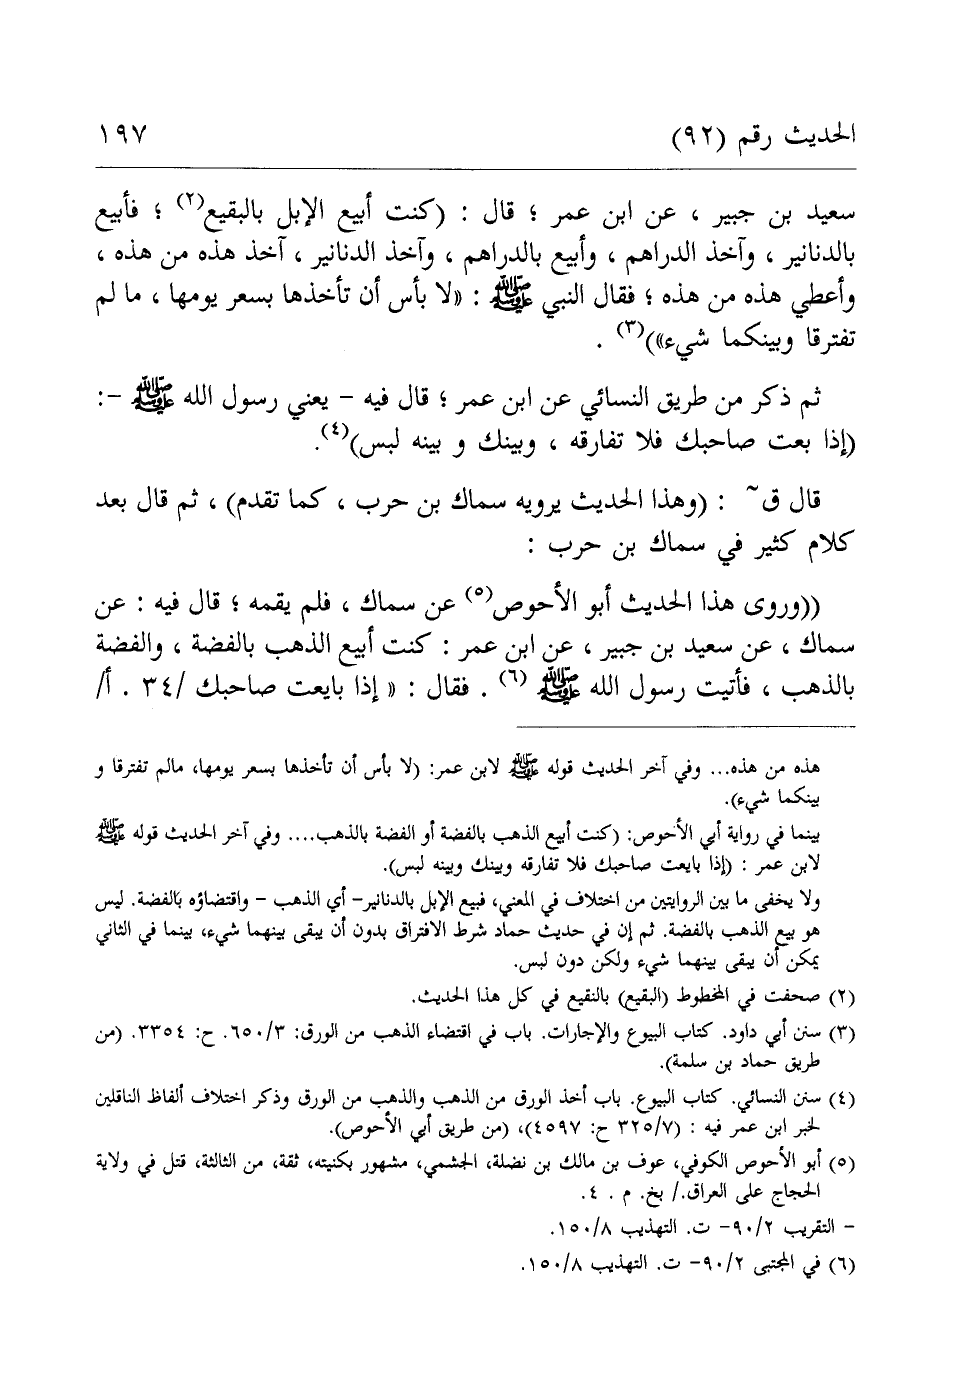 الحديث رقم (٩٢) ١٩٧
سعيد بن جبير ، عن ابن عمر ؛ قال : (كنت أبيع الإبل بالبقيع(٢) ؛ فأبيع
بالدنانير ، وآخذ الدراهم ، وأبيع بالدراهم ، وآخذ الدنانير ، آخذ هذه من هذه ،
وأعطي هذه من هذه ؛ فقال النبي ﷺ : «لا بأس أن تأخذها بسعر يومها ، ما لم
تفترقا وبينكما شيء»)(٣) .
ثم ذكر من طريق النسائي عن ابن عمر ؛ قال فيه – يعني رسول الله ﷺ –:
(إذا بعت صاحبك فلا تفارقه ، وبينك و بينه لبس)(٤).
قال ق~ : (وهذا الحديث يرويه سماك بن حرب ، كما تقدم) ، ثم قال بعد
كلام كثير في سماك بن حرب :
((وروى هذا الحديث أبو الأحوص(٥) عن سماك ، فلم يقمه ؛ قال فيه : عن
سماك ، عن سعيد بن جبير ، عن ابن عمر : كنت أبيع الذهب بالفضة ، والفضة
بالذهب ، فأتيت رسول الله ﷺ (٦) . فقال : « إذا بايعت صاحبك /٣٤ . أ/
هذه من هذه... وفي آخر الحديث قوله ﷺ لابن عمر: (لا بأس أن تأخذها بسعر يومها، مالم تفترقا و
بينكما شيء).
بينما في رواية أبي الأحوص: (كنت أبيع الذهب بالفضة أو الفضة بالذهب.... وفي آخر الحديث قوله ﷺ
لابن عمر : (إذا بايعت صاحبك فلا تفارقه وبينك وبينه لبس).
ولا يخفى ما بين الروايتين من اختلاف في المعني، فبيع الإبل بالدنانير– أي الذهب – واقتضاؤه بالفضة. ليس
هو بيع الذهب بالفضة. ثم إن في حديث حماد شرط الافتراق بدون أن يبقى بينهما شيء، بينما في الثاني
يمكن أن يبقى بينهما شيء ولكن دون لبس.
(٢) صحفت في المخطوط (البقيع) بالنقيع في كل هذا الحديث.
(٣) سنن أبي داود. كتاب البيوع والإجارات. باب في اقتضاء الذهب من الورق: ٦٥٠/٣. ح: ٣٣٥٤. (من
طريق حماد بن سلمة).
(٤) سنن النسائي. كتاب البيوع. باب أخذ الورق من الذهب والذهب من الورق وذكر اختلاف ألفاظ الناقلين
لخبر ابن عمر فيه : (٣٢٥/٧ ح: ٤٥٩٧)، (من طريق أبي الأحوص).
(٥) أبو الأحوص الكوفي، عوف بن مالك بن نضلة، الجشمي، مشهور بكنيته، ثقة، من الثالثة، قتل في ولاية
الحجاج على العراق./ بخ. م . ٤.
– التقريب ٩٠/٢– ت. التهذيب ١٥٠/٨.
(٦) في المجتبى ٩٠/٢– ت. التهذيب ١٥٠/٨.